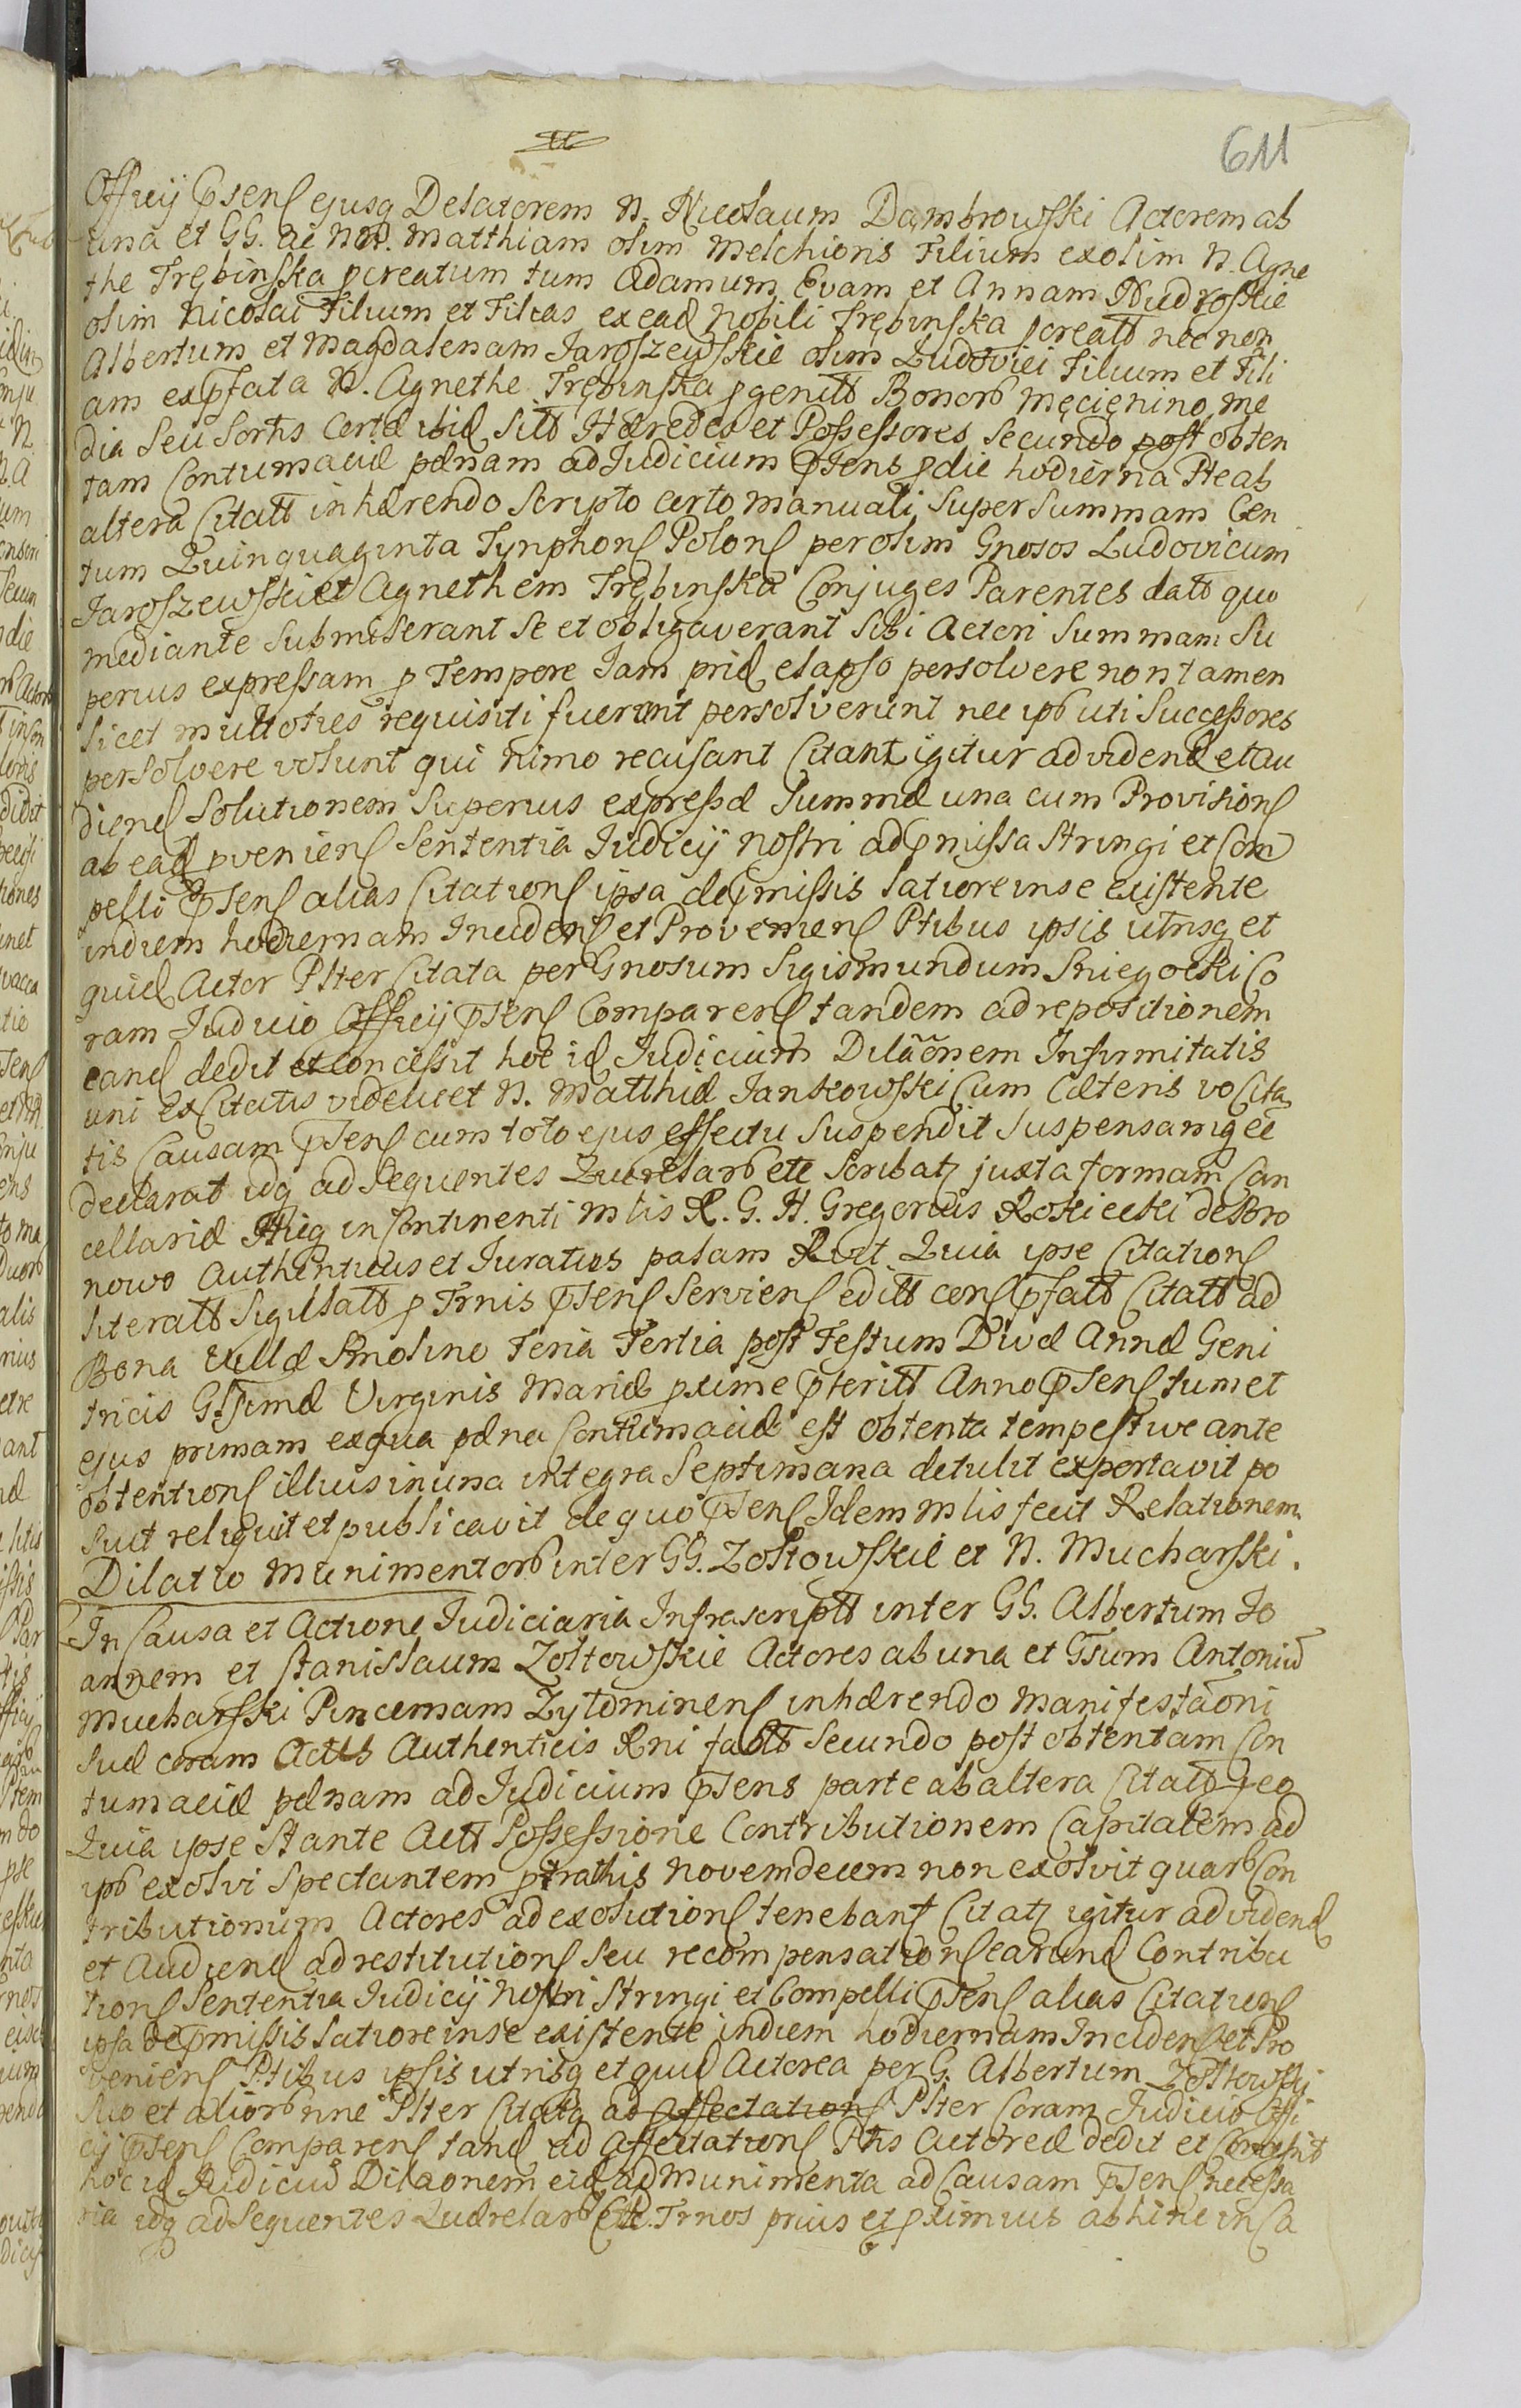 611
Officij Pntens ejusq Delatorem N. Nicolaum Dambrowski Actorem ab
una et GG. ac NN. Matthiam olim Melchioris Filium ex olim N. Agne
the Trębinska pcreatum tum Adamum Evam et Annam Nudroskie
olim Nicolai Filium et Filias ex ead Nobili Trębinska pcreatt nec non
Albertum et Magdalenam Jaroszewskie olim Ludovici Filium et Fili
am ex pfata N. Agnethe Trębinska pgenitt Bonorb Męcienino me
dia Seu Sortis Certæ ibid Sitt Hæredes et Possessores Secundo post obten
tam Contumaciæ pænam ad Judicium Ptens p die hodierna Pte ab
altera Citatt inhærendo Scripto certo manuali Super Summam Cen
tum Quinquaginta Tynphons Polons per olim Gnosos Ludovicum
Jaroszewski et Agnethem Trębinska Conjuges Parentes datt quo
mediante Submiserant Se et obligaverant Sibi Actori Summam Su
perius expressam p Tempore Jam prid elapso persolvere non tamen
licet multoties requisiti fuerant persolverunt nec ipb uti Successores
persolvere volunt qui nimo recusant Citant igitur ad videnđ et au
dienđ Solutionem Superius expressæ Summæ una cum Provisions
ab eađ pveniens Sententia Judicij nostri ad pmissa Stringi et Com
pelli Ptens alias Citations ipsa de pmissis latiore in se existente
in diem hodiernam Incidens et Proveniens Ptibus ipsis utrisq et
quid Actor Plter Citata per Gnosum Sigismundum Sniegocki Co
ram Judicio Officij Ptens Comparens tandem ad repositionem
eanđ dedit et Concessit hoc iđ Judicium Dilãonem Infirmitatis
uni ex Citatis videlicet N. Matthiæ Jankowski Cum Cæteris vo Cita
tis Causam Ptens cum toto ejus effectu Suspendit Suspensamq eè
declarat idq ad Sequentes Querelarb ete Scribatz juxta formam Can
cellariæ Hicq in Continenti Mlis R. G. H. Gregorius Rokicki de Bro
nowo Authenticus et Juratus palam Rvit Quia ipse Citations
literatt Sigillatt p Trnis Ptens Serviens editt cons Pfatt Citatt ad
Bona Villæ Smolino Feria Tertia post Festum Divæ Annæ Geni
tricis Gssimæ Virginis Mariæ pxime Pteritt Anno Ptens tum et
ejus primam ex qua pæna Contumaciæ est obtenta tempestive ante
obtentions illius in una integra Septimana detulit exportavit po
suit reliquit et publicavit de quo Ptens Idem Mlis fecit Relationem
Dilatio Munimentorb inter GG. Zołtowskie et N. Mucharski.
In Causa et Actione Judiciaria Infrascriptt inter GG. Albertum Jo
annem et Stanislaum Zołtowskie Actores ab una et Gsum Antoniu
Mucharski Pincernam Zytominens inhærendo Manifestãoni
Suæ coram Actis Authenticis Rni factt Secundo post obtentam Con
tumaciæ pænam ad Judicium Ptens parte ab altera Citatt
Quia ipse Stante Actt Possessione Contributionem Capitalem ad
ipb exolvi Spectantem p trathis Novemdecem non exolvit quarb Con
tributionum Actores ad exolutions tenebant Citatz igitur ad videnđ
et Audienđ ad restitutions Seu recompensations earunđ Contribu
tions Sententia Judicij Nostri Stringi et Compelli Ptens alias Citations
ipsa de pmissis latiore in se existente in diem hodiernam Incidens et Pro
veniens Ptibus ipsis utrisq et quid Actorea per G. Albertum Zołtowski
Suo et aliorb nne Plter Citatq ad Affectations Plter Coram Judicio Offi
cij Ptens Comparens tanđ ad Affectations Ptis Actoreæ dedit et Concessit
hoc iđ Judiciu Dilaonem eiđ ad Munimenta ad Causam Ptens necessa
ria idq ad Sequentes Quærelarb ete. Trnos prius et pximius ab hinc in Ca